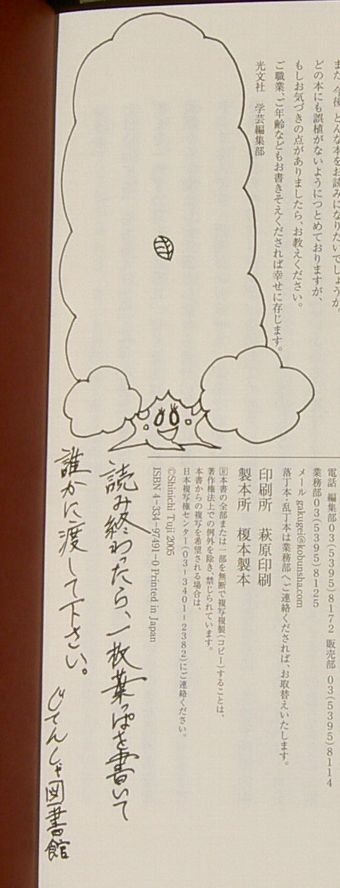 また、今後、どんな本をお読みになりたいでしょうか。
どの本にも誤植がないようにつとめておりますが、
もしお気づきの点がありましたら、お教えください。
ご職業、ご年齢などもお書きそえくだされば幸せに存じます。
光文社 学芸編集部
電話 編集部03(5395)8172 販売部 03(5395)8114
業務部03(5395)8125
メール gakugei@kobunsha.com
落丁本・乱丁本は業務部へご連絡くだされば、お取替えいたします。
印刷所 萩原印刷
製本所 榎本製本
R本書の全部または一部を無断で複写複製(コピー)することは、
著作権法上での例外を除き、禁じられています。
本書からの複写を希望される場合は、
日本複写権センター(03-3401-2382)にご連絡ください。
©Shinichi Tuji 2005
ISBN 4-334-97491-0 Printed in Japan
読み終わったら、一枚葉っぱを書いて
誰かに渡して下さい。
じてんしゃ図書館